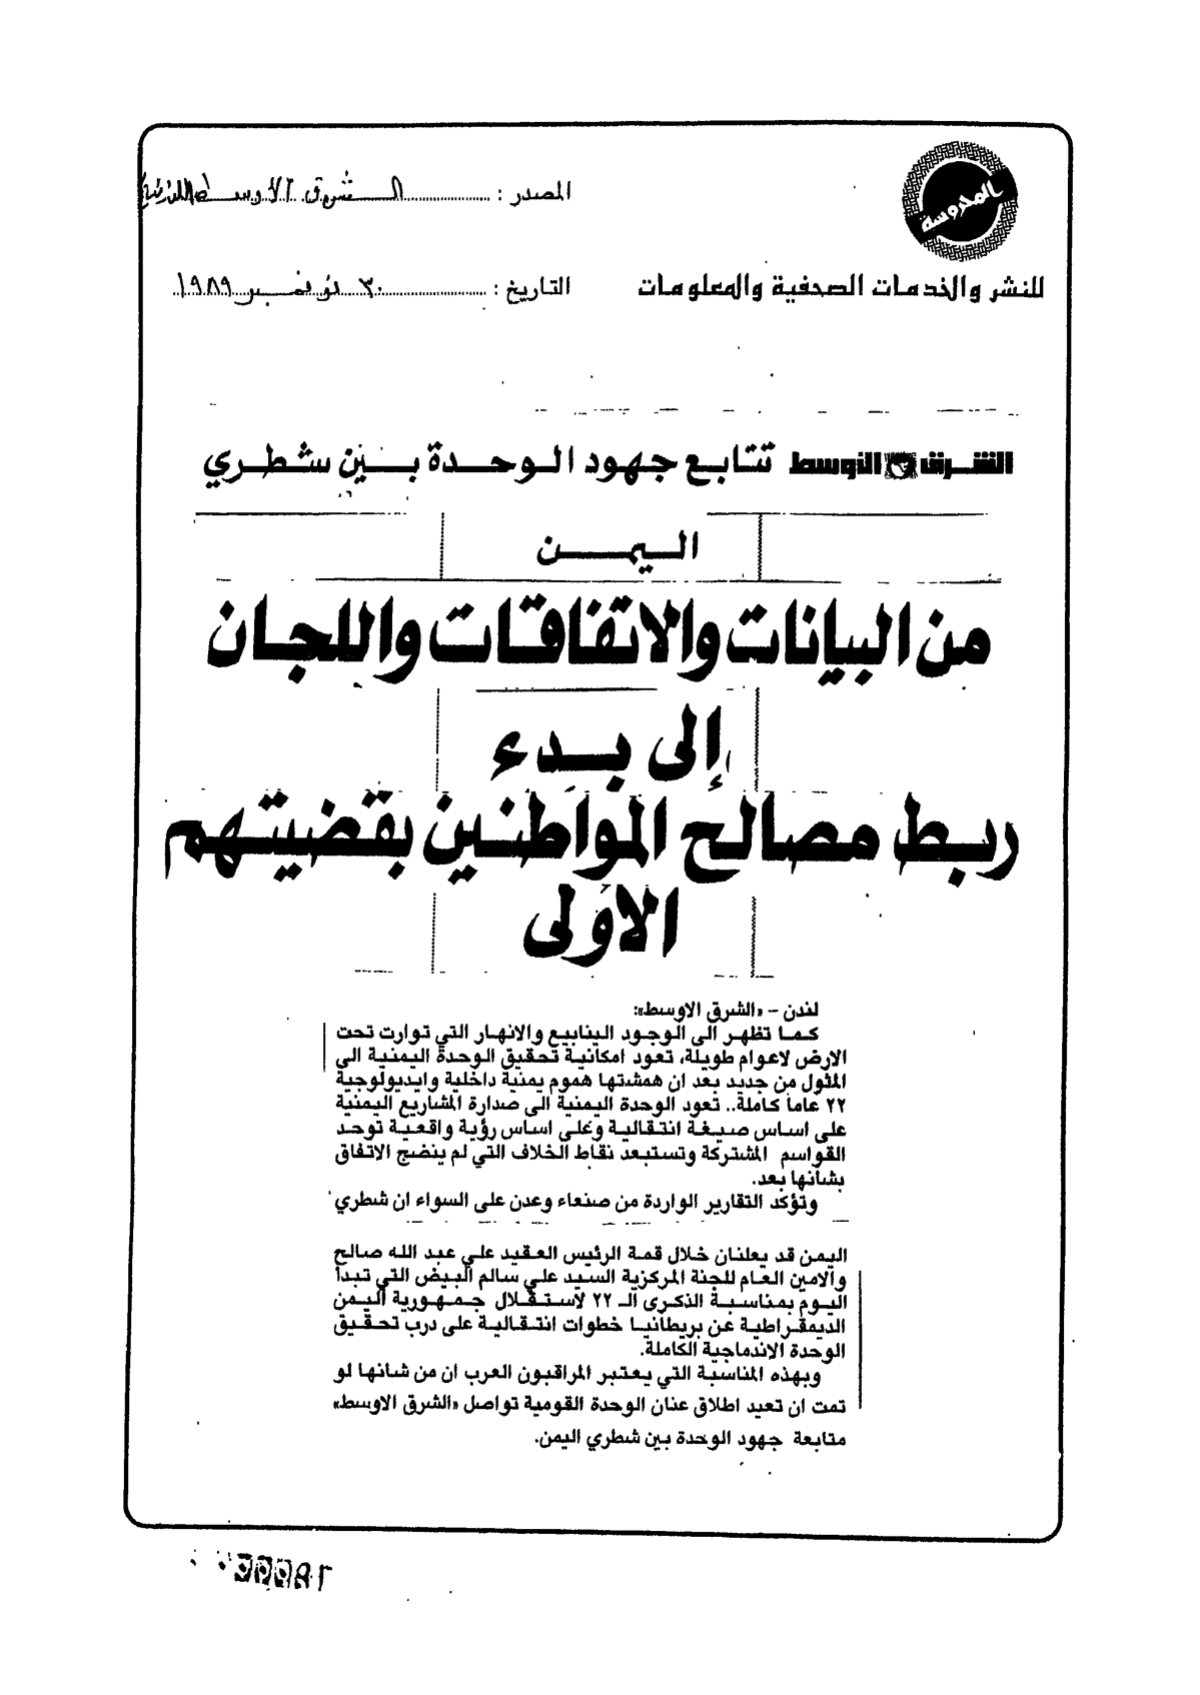 المحروسة
المصدر : الشرق الأوسط اللندنية
للنشر والخدمات الصحفية والمعلومات
التاريخ : ٣٠ نوفمبر ١٩٨٩
الشرق الأوسط تتابع جهود الوحدة بين شطري
اليمن
من البيانات والاتفاقات واللجان
إلى بدء
ربط مصالح المواطنين بقضيتهم
الأولى
لندن – «الشرق الاوسط»:
كما تظهر الى الوجود الينابيع والانهار التي توارت تحت
الارض لاعوام طويلة، تعود امكانية تحقيق الوحدة اليمنية الى
المثول من جديد بعد ان همشتها هموم يمنية داخلية وايديولوجية
٢٢ عاما كاملة.. تعود الوحدة اليمنية الى صدارة المشاريع اليمنية
على اساس صيغة انتقالية وعلى اساس رؤية واقعية توحد
القواسم المشتركة وتستبعد نقاط الخلاف التي لم ينضج الاتفاق
بشأنها بعد.
وتؤكد التقارير الواردة من صنعاء وعدن على السواء ان شطري
اليمن قد يعلنان خلال قمة الرئيس العقيد علي عبد الله صالح
والامين العام للجنة المركزية السيد علي سالم البيض التي تبدأ
اليوم بمناسبة الذكرى الـ ٢٢ لاستقلال جمهورية اليمن
الديمقراطية عن بريطانيا خطوات انتقالية على درب تحقيق
الوحدة الاندماجية الكاملة.
وبهذه المناسبة التي يعتبر المراقبون العرب ان من شانها لو
تمت ان تعيد اطلاق عنان الوحدة القومية تواصل «الشرق الاوسط»
متابعة جهود الوحدة بين شطري اليمن.